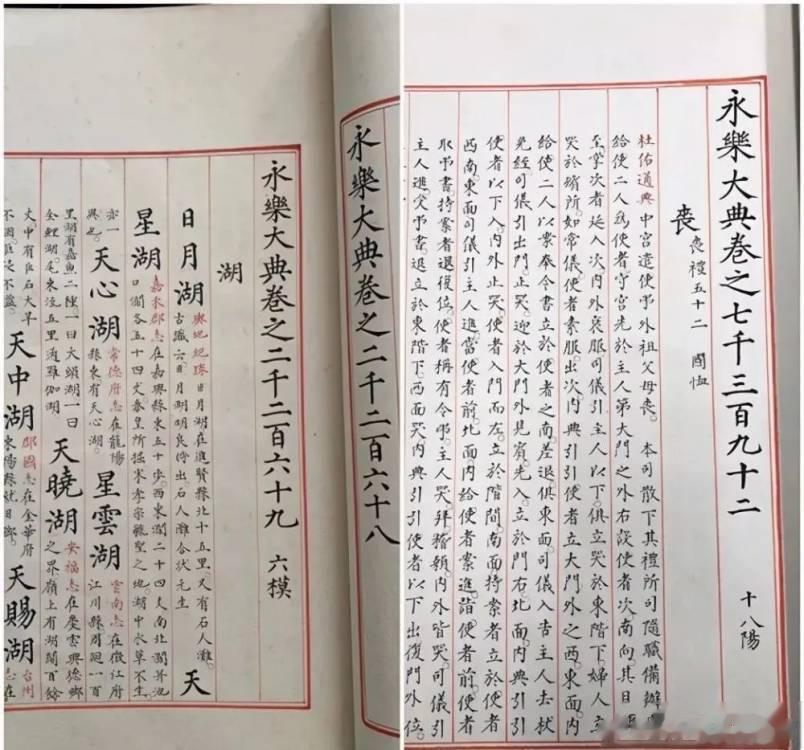 永樂大典卷之七千三百九十二 十八陽
喪 喪禮五十二 國恤
杜佑通典中宮遣使弔外祖父母喪。本司散下其禮所司隨職備辦
給使二人爲使者守宮先於主人第大門之外右設使者次南向其日
至掌次者延入次內外衰服司儀引主人以下俱立哭於東階下婦人立
哭於殯所如常儀使者素服出次內典引引使者立大門外之西東面內
給使二人以案奉令書立於使者之南差退俱東面司儀入告主人去杖
免絰司儀引出門止哭迎於大門外見賓先入立於門右北面內典引引
使者以下入內外止哭使者入門而左立於階間南面持案者立於使者
西南東面司儀引主人進當使者前北面內給使者案進詣使者前使者
取弔書持案者退復位使者稱有令弔主人哭拜稽顙內外皆哭司儀引
主人進受弔書退立於東階下西面哭內典引引使者以下出復門外位
永樂大典卷之二千二百六十八
永樂大典卷之二千二百六十九 六模
湖
日月湖 輿地紀勝日月湖在進賢縣北十五里又有石人灘
古讖云日月湖明良將出石人灘合狀元生 天
星湖 嘉禾郡志在嘉興縣東五十步西東濶二十四丈南北濶
口濶各五十四丈秦皇所掘宋孝宗毓聖之地湖中水草不生
亦一
異也 天心湖 常德府志在龍陽
縣東有天心湖 星雲湖 雲南志在澂江府
江川縣周廻一百
里湖有嘉魚二種一曰大頭湖一曰
金鯉湖尾東泣五里通撫仙湖 天曉湖 安福志在慶雲興德鄉
之界嶺上有湖闊百餘
丈中有巨石大旱
不涸 天中湖 郡國志在金華府
東陽縣 天賜湖 台州
志在